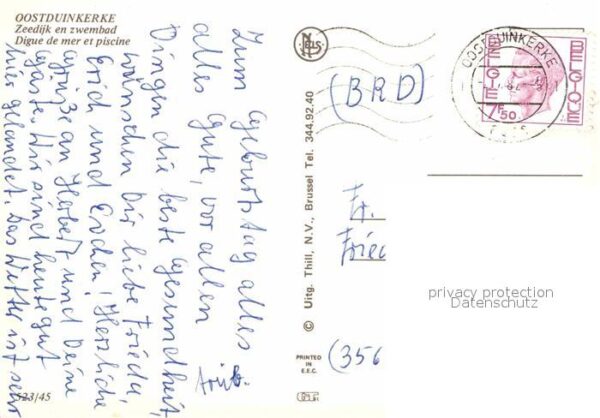 OOSTDUINKERKE
Zeedijk en zwembad
Digue de mer et piscine
Zum Geburtstag alles
alles Gute, vor allen
Dingen die beste Gesundheit,
wünschen Dir liebe Frieda,
Erich und Evchen! Herzliche
Grüße an Herbert und Deine
Gäste. Wir sind heute gut
hier gelandet. Das Wetter ist sehr
523/45
NELS
© Uitg. Thill, N.V., Brussel Tel. 344.92.40
PRINTED
IN
E.E.C.
(BRD)
OOSTDUINKERKE
BELGIE
BELGIQUE
7F50
Fr.
Fried
(356
privacy protection
Datenschutz